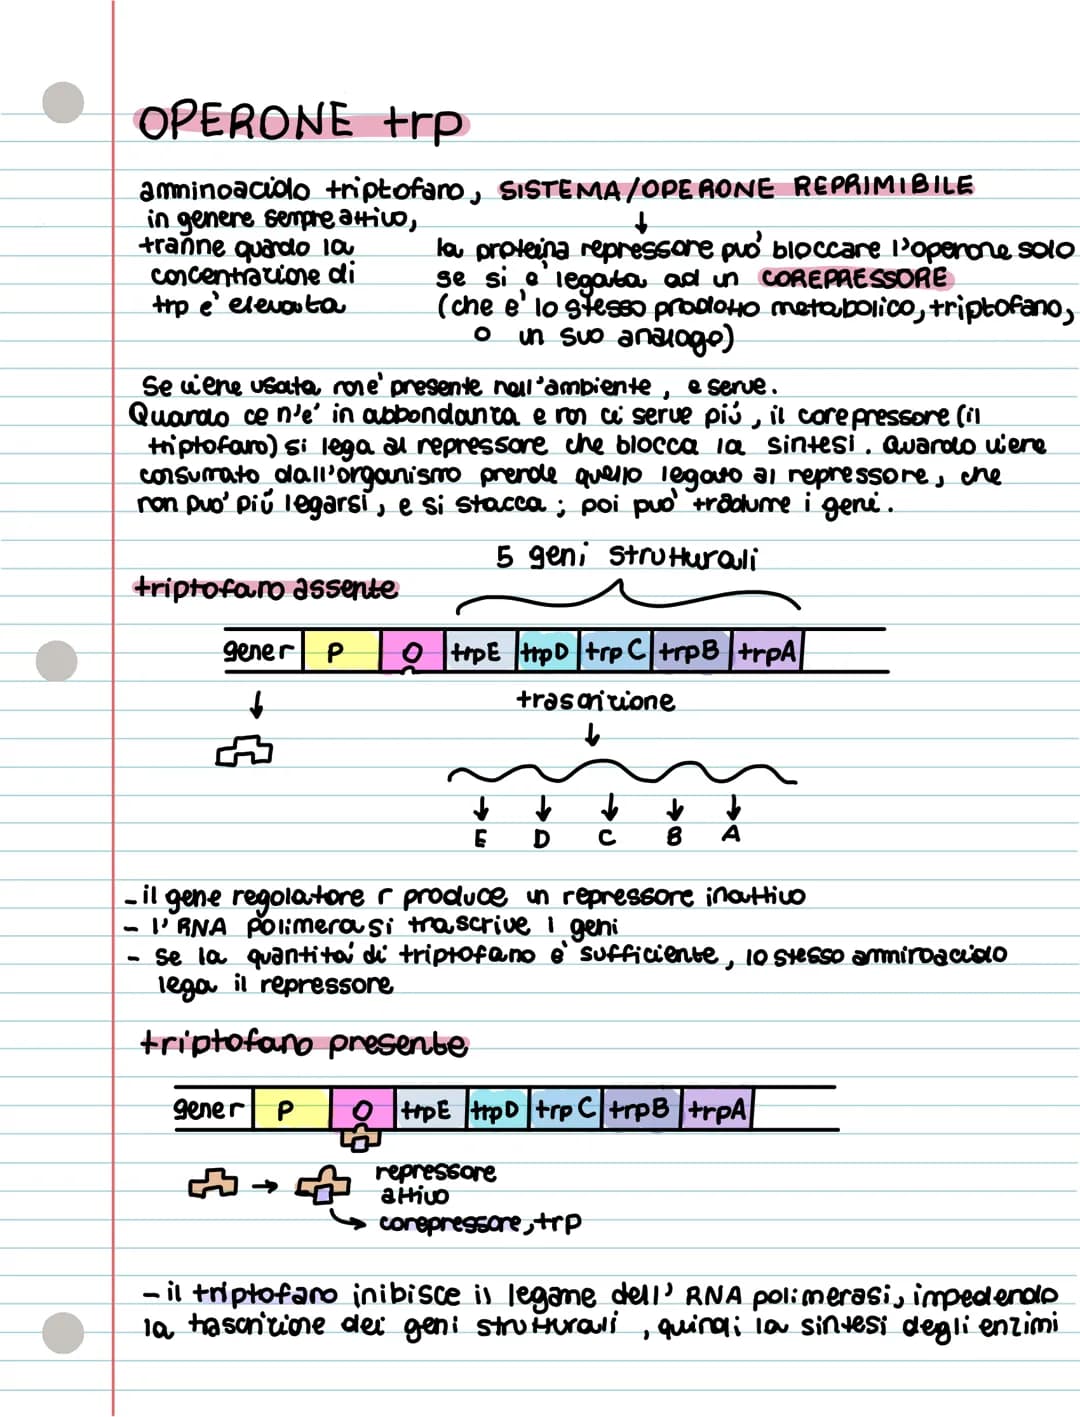 OPERONE trp
amminoacido triptofano, SISTEMA/OPERONE REPRIMIBILE
in genere sempre attivo,
tranne quando la
concentrazione di
trp e' elevata
↓
la proteina repressore puo' bloccare l'operone solo
se si e' legata ad un COREPRESSORE
(che e' lo stesso prodotto metabolico, triptofano,
o un suo analogo)
Se viene usata, non e' presente nell'ambiente, e serve.
Quando ce n'e' in abbondanza e non ci serve più, il corepressore (il
triptofano) si lega al repressore che blocca la sintesi. Quando viene
consumato dall'organismo prende quello legato al repressore, che
non puo' più legarsi, e si stacca; poi puo' tradurre i geni.
5 geni strutturali
triptofano assente
gene r P O trpE trpD trpC trpB trpA
trascrizione
↓
↓ ↓ ↓ ↓ ↓
E D C B A
- il gene regolatore r produce un repressore inattivo
- l'RNA polimerasi trascrive i geni
- se la quantita' di triptofano e' sufficiente, lo stesso amminoacido
lega il repressore
triptofano presente
gene r P O trpE trpD trpC trpB trpA
→ repressore
attivo
→ corepressore, trp
- il triptofano inibisce il legame dell' RNA polimerasi, impedendo
la trascrizione dei geni strutturali, quindi la sintesi degli enzimi